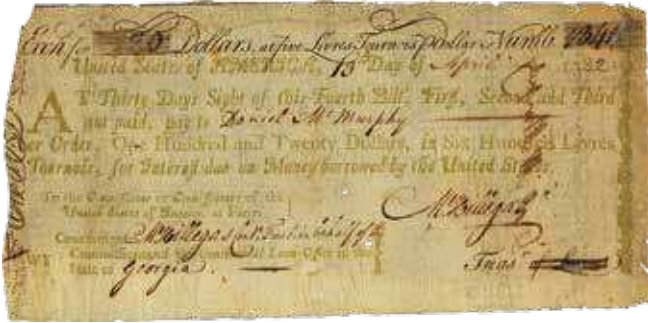 Exch. for 120 Dollars, at five Livres Turnois p Dollar, Numb. 1341
United States of AMERICA, 13 Day of April 1782
AT Thirty Days Sight of this Fourth Bill, First, Second, and Third
not paid, pay to Daniel McMurphy
or Order, One Hundred and Twenty Dollars, in Six Hundred Livres
Tournois, for Interest due on Money borrowed by the United States.
To the Commissioner or Commissioners of the
United States of America at Paris
Countersigned,
Commissioner of the Continental Loan-Office in the
State of Georgia.
Treasr of